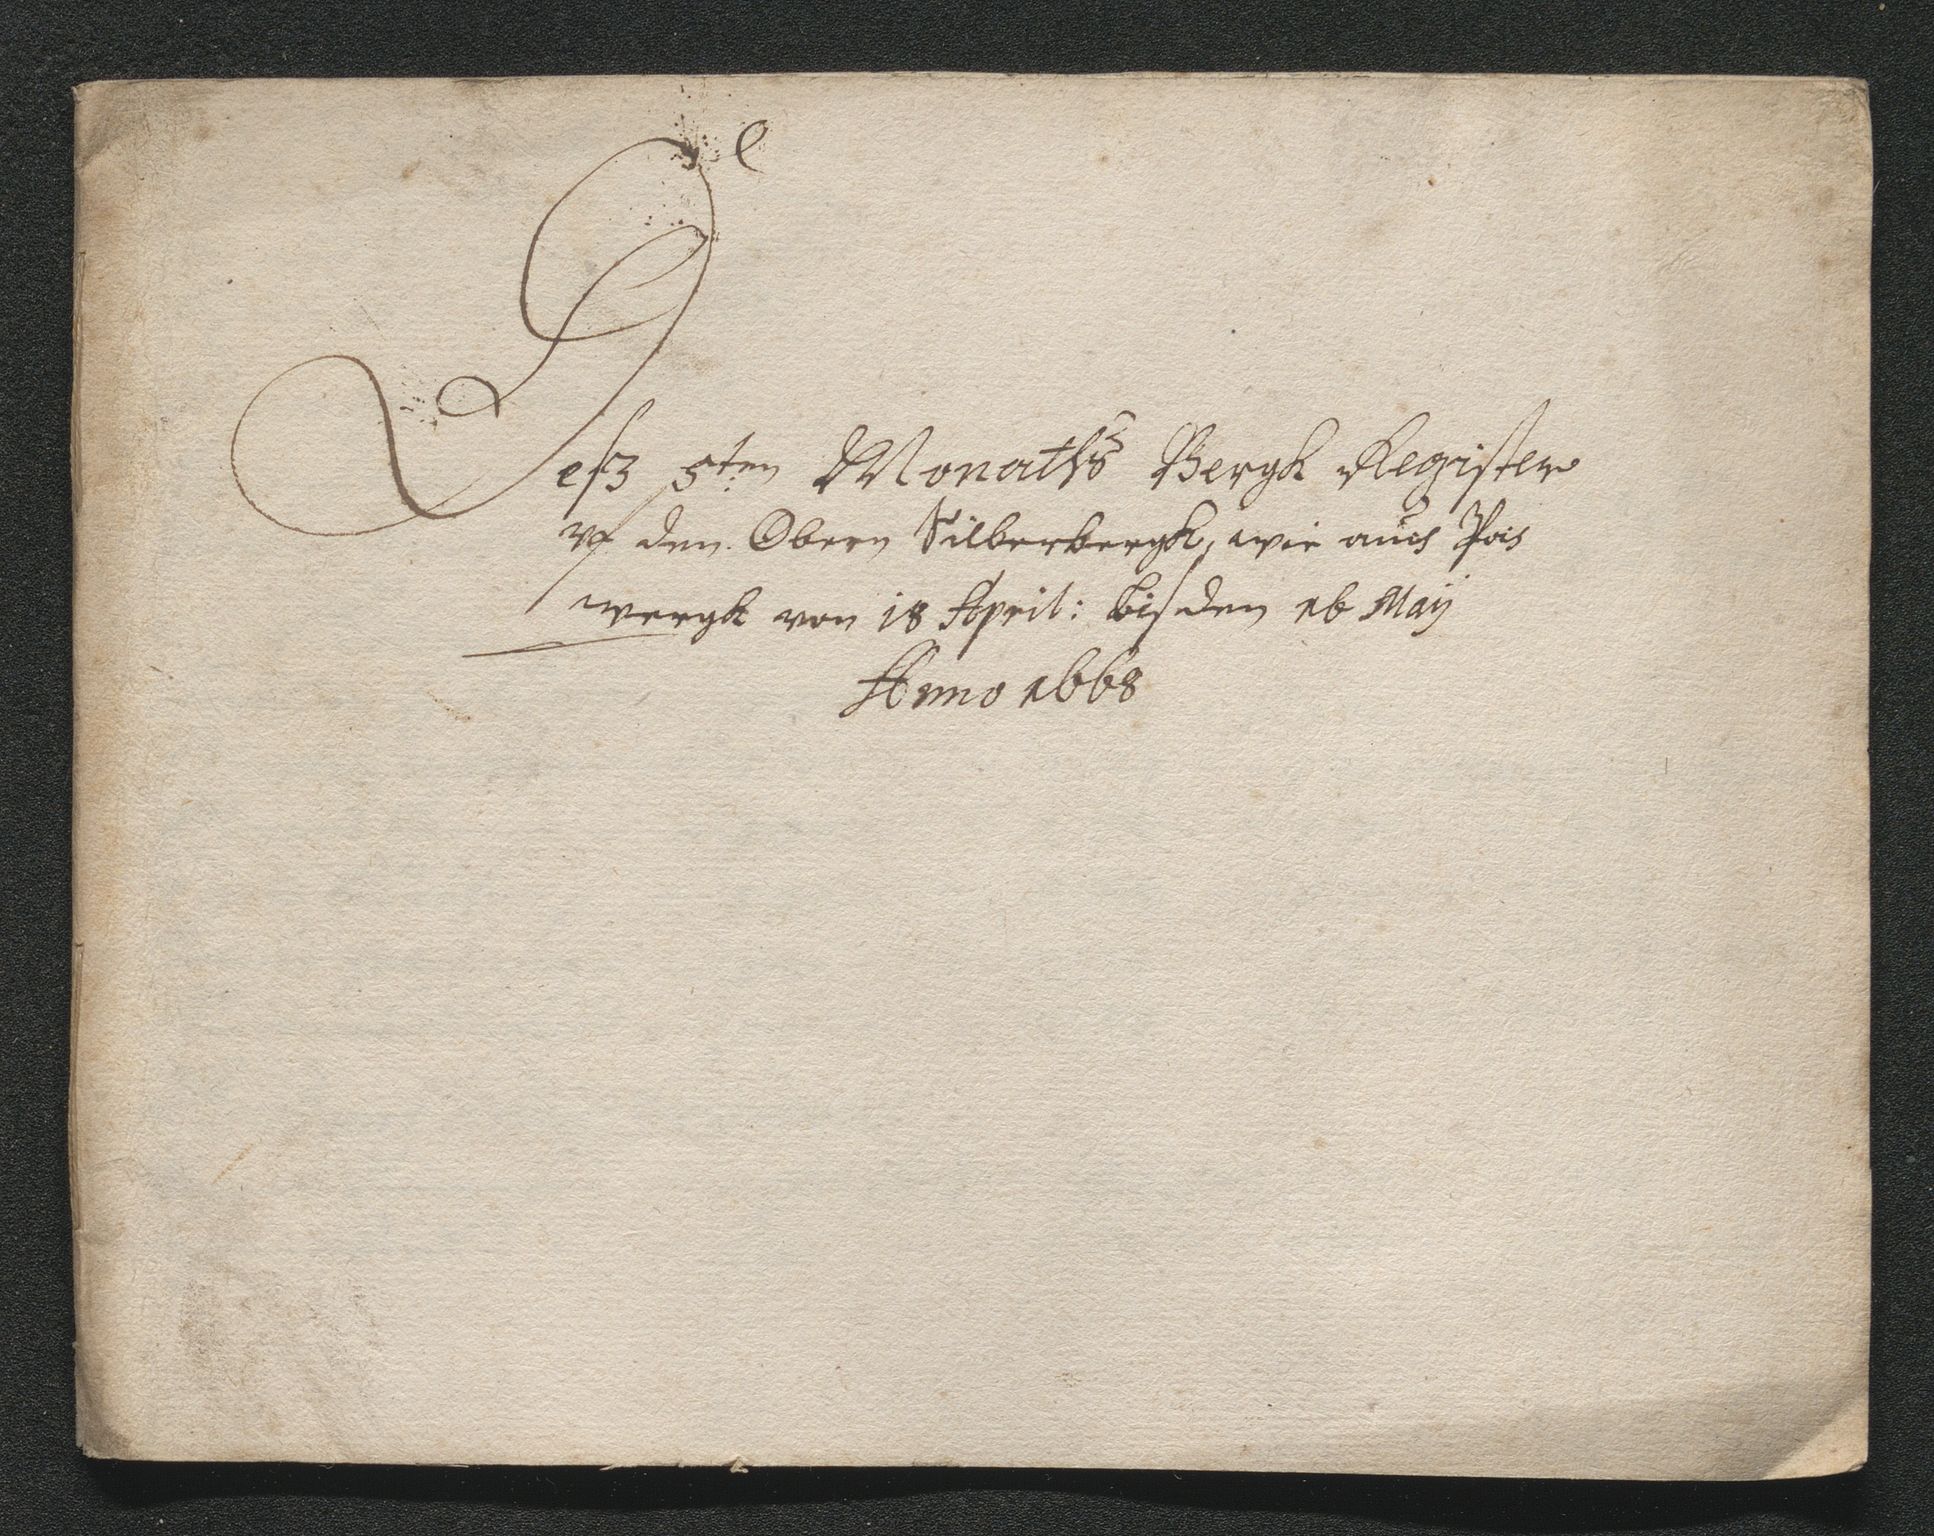 Deß 5ten Monaths Bergk Register
vf den Obern Silberbergk, wie auch Poch
wergk von 18 April: biß den 16 Maÿ
Anno 1668